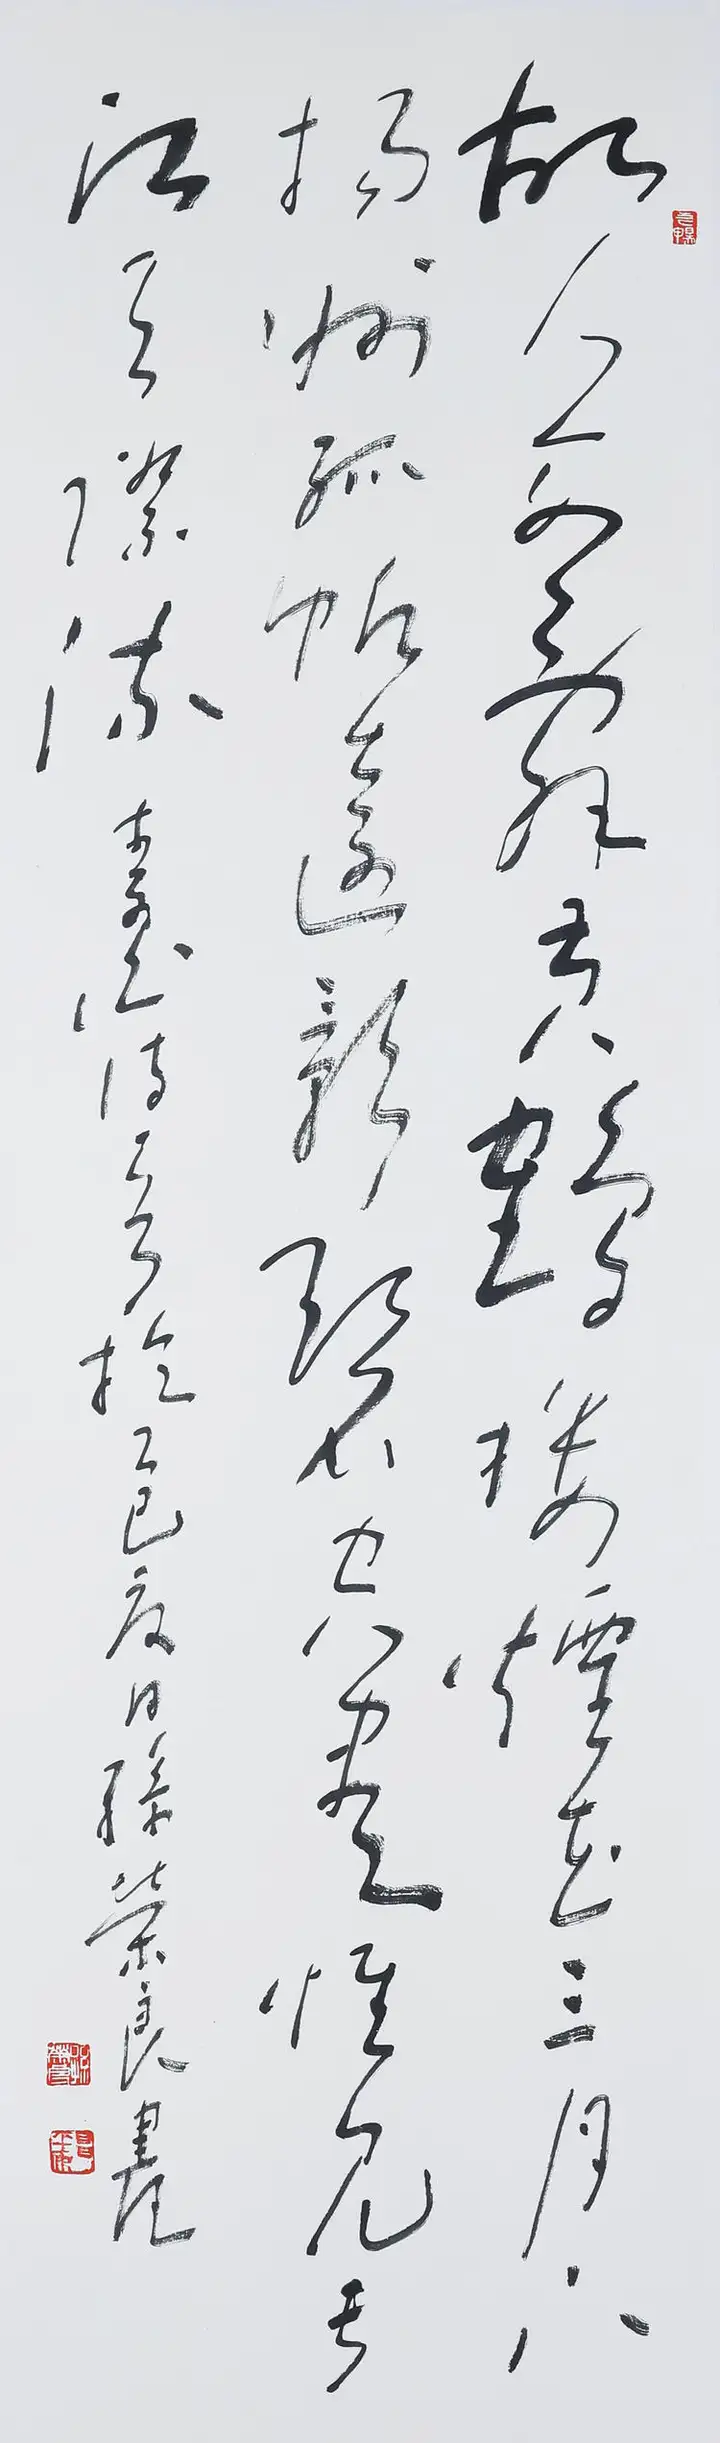 故人西辭黃鶴樓煙花三月下
揚州孤帆遠影碧空盡惟見長
江天際流 李白詩一首於乙巳夏日孫榮良書